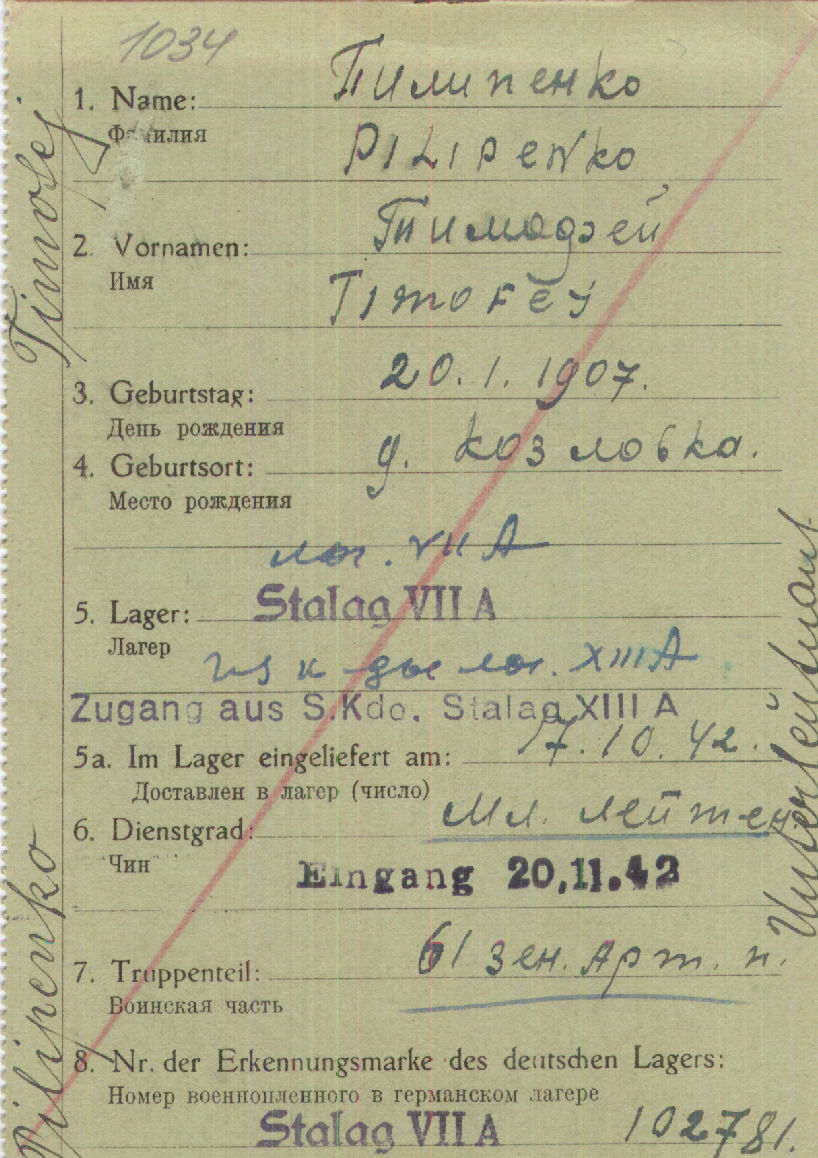 1034
1. Name: Пилипенко
Фамилия PILIPENKO
2. Vornamen: Тимофей
Имя TIMOFEY
3. Geburtstag: 20.1.1907.
День рождения
4. Geburtsort: д. Козловка.
Место рождения
лаг. VII A
5. Lager: Stalag VII A
Лагер
лаг. XIII A
Zugang aus S.Kdo. Stalag XIII A
5a. Im Lager eingeliefert am: 17.10.42.
Доставлен в лагер (число)
6. Dienstgrad: Мл. лейтен
Чин Eingang 20.11.42
7. Truppenteil: 61 зен. арт. п.
Воинская часть
8. Nr. der Erkennungsmarke des deutschen Lagers:
Номер военнопленного в германском лагере
Stalag VII A 102781.
Pilipenko Timofej
Unterleutnant